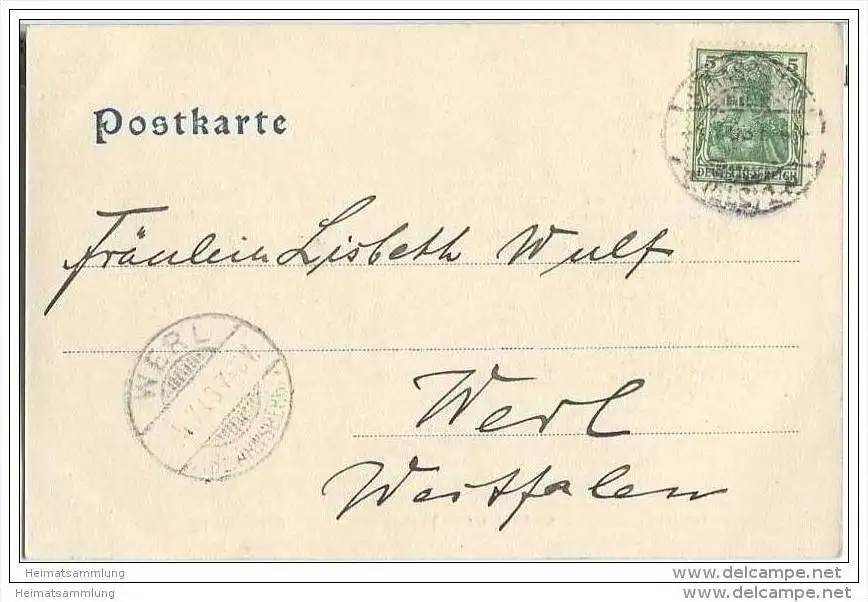 Postkarte
5 5
DEUTSCHES REICH
Fräulein Lisbeth Wulf
WERL
Werl
Westfalen
Heimatsammlung
Heimatsammlung
www.delcampe.net
www.delcampe.net